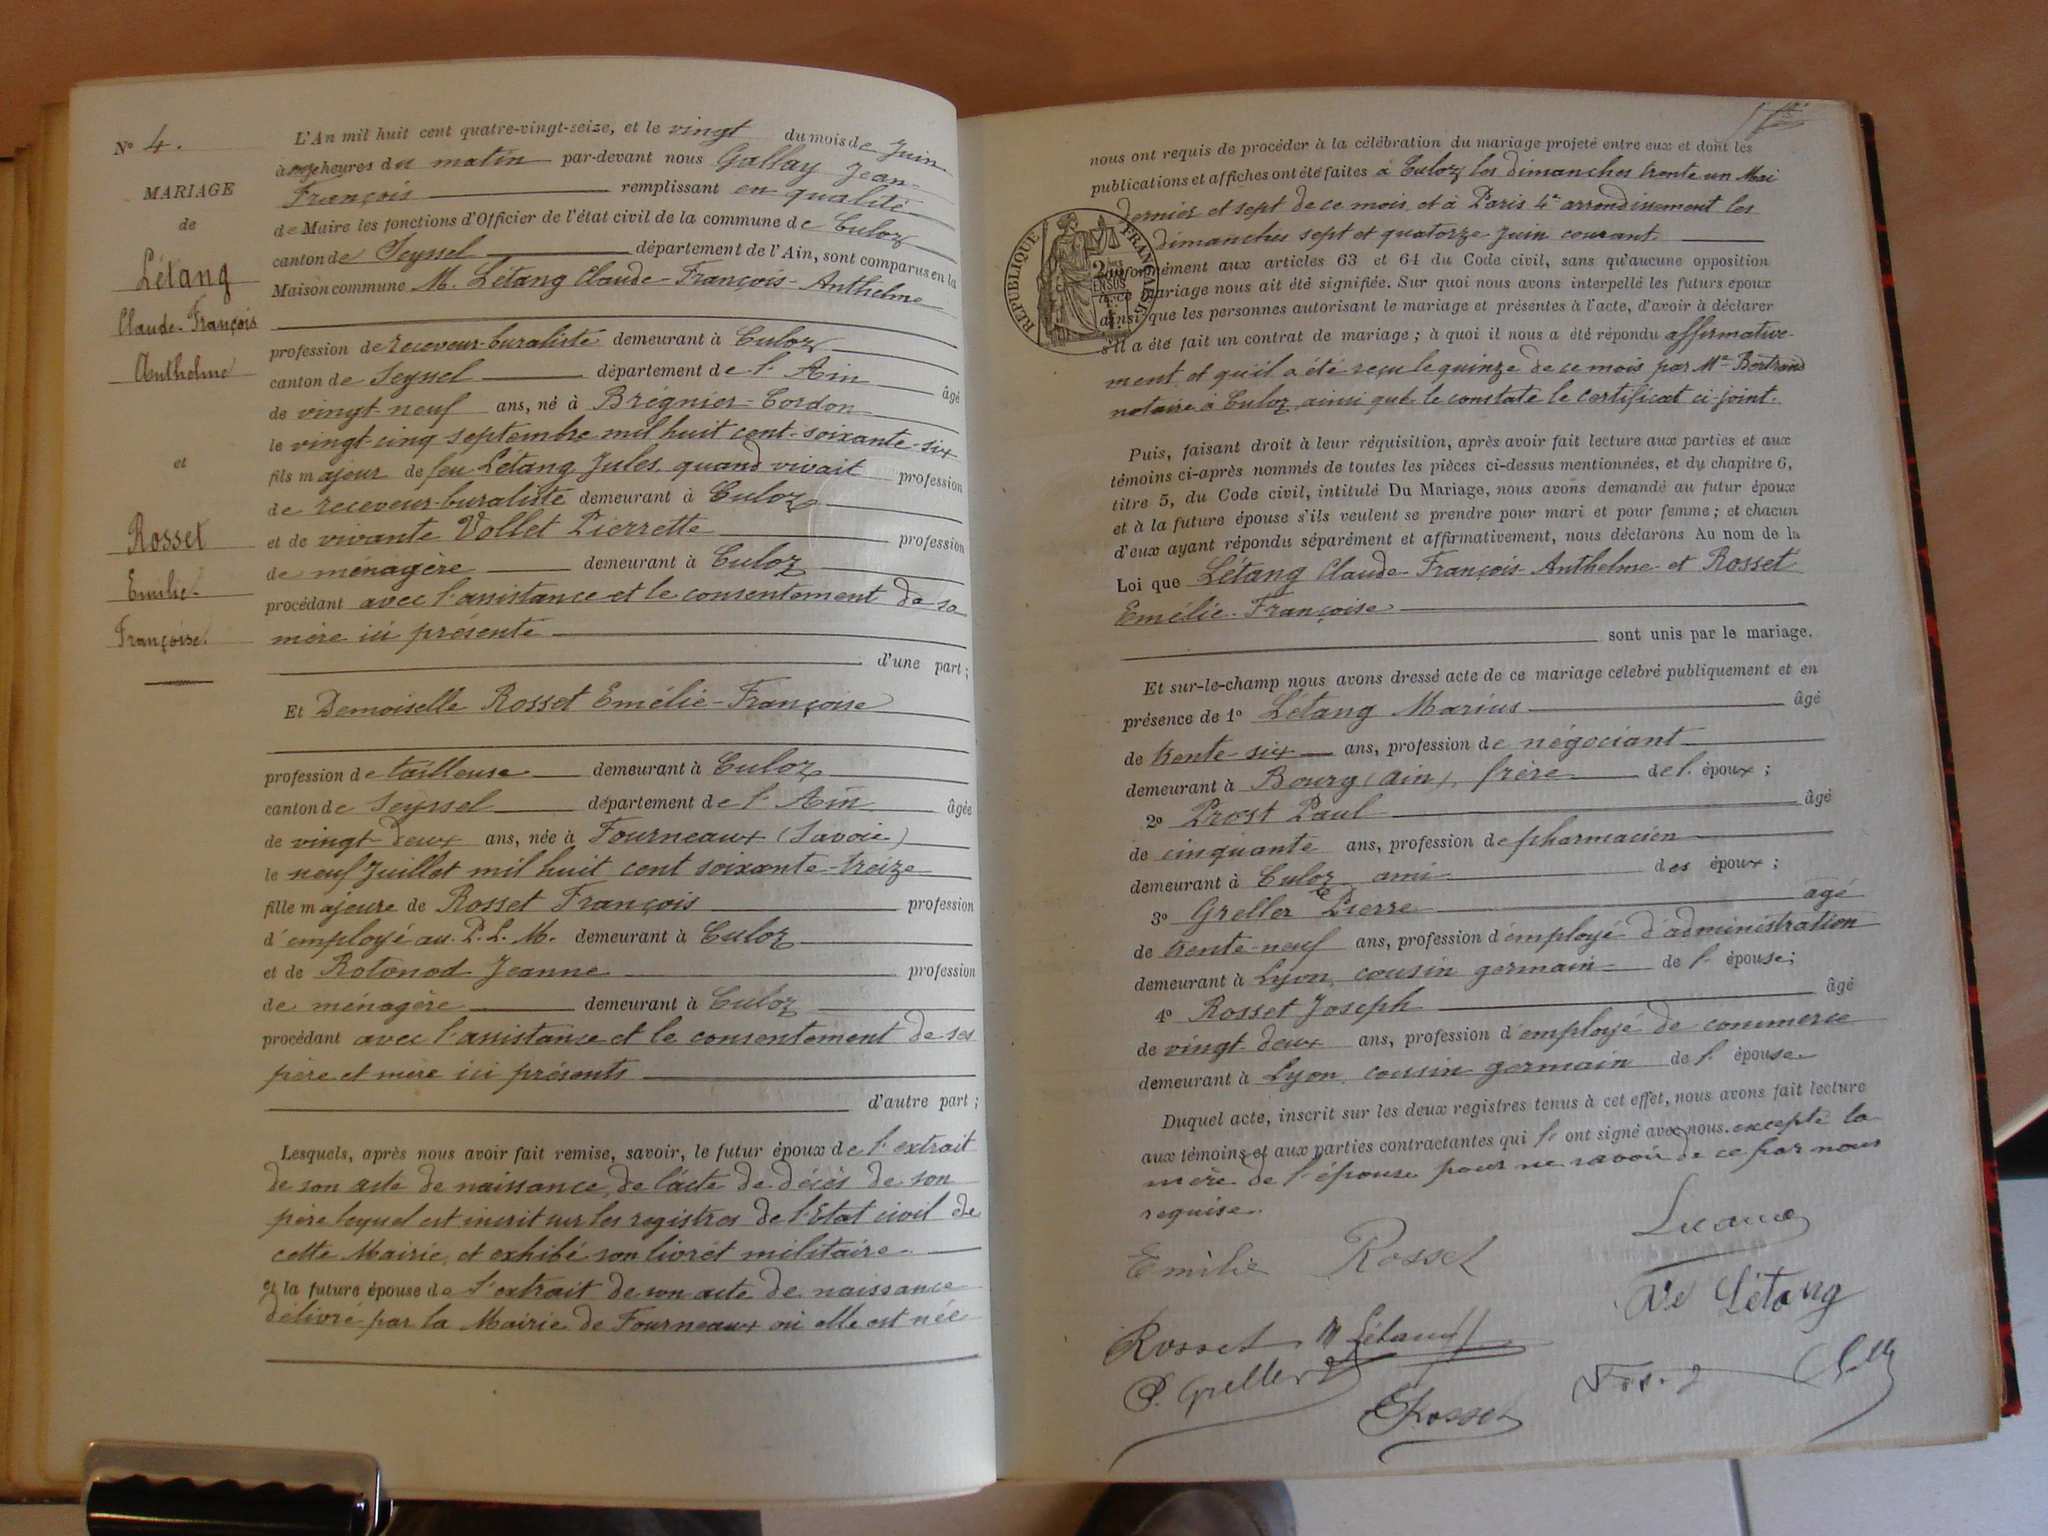 N° 4.
MARIAGE
de
Létang
Claude-François
Anthelme
et
Rosset
Emilie-
Françoise.
L'An mil huit cent quatre-vingt-seize, et le vingt du mois de Juin
à onze heures du matin par-devant nous Gallay Jean-
François remplissant en qualité
de Maire les fonctions d'Officier de l'état civil de la commune de Culoz
canton de Seyssel département de l'Ain, sont comparus en la
Maison commune M. Létang Claude-François-Anthelme
profession de receveur-buraliste demeurant à Culoz
canton de Seyssel département de l'Ain âgé
de vingt-neuf ans, né à Brégnier-Cordon
le vingt-cinq septembre mil huit cent-soixante-six
fils majeur de feu Létang Jules, quand vivait profession
de receveur-buraliste demeurant à Culoz
et de vivante Vollet Pierrette profession
de ménagère demeurant à Culoz
procédant avec l'assistance et le consentement de sa
mère ici présente
d'une part ;
Et Demoiselle Rosset Emélie-Françoise
profession de tailleuse demeurant à Culoz
canton de Seyssel département de l'Ain âgée
de vingt-deux ans, née à Fourneaux (Savoie)
le neuf Juillet mil huit cent soixante-treize
fille majeure de Rosset François profession
d'employé au P. L. M. demeurant à Culoz
et de Rotonod Jeanne profession
de ménagère demeurant à Culoz
procédant avec l'assistance et le consentement de ses
père et mère ici présents
d'autre part ;
Lesquels, après nous avoir fait remise, savoir, le futur époux de l'extrait
de son acte de naissance, de l'acte de décès de son
père lequel est inscrit sur les registres de l'Etat civil de
cette Mairie, et exhibé son livret militaire.
et la future épouse de l'extrait de son acte de naissance
délivré par la Mairie de Fourneaux où elle est née
nous ont requis de procéder à la célébration du mariage projeté entre eux et dont les
publications et affiches ont été faites à Culoz les dimanches trente un Mai
dernier et sept de ce mois et à Paris 4e arrondissement les
dimanches sept et quatorze Juin courant.
RÉPUBLIQUE FRANÇAISE
conformément aux articles 63 et 64 du Code civil, sans qu'aucune opposition
à ce mariage nous ait été signifiée. Sur quoi nous avons interpellé les futurs époux
ainsi que les personnes autorisant le mariage et présentes à l'acte, d'avoir à déclarer
s'il a été fait un contrat de mariage ; à quoi il nous a été répondu affirmative-
ment et qu'il a été reçu le quinze de ce mois par Me Bertrand
notaire à Culoz, ainsi que le constate le certificat ci-joint.
Puis, faisant droit à leur réquisition, après avoir fait lecture aux parties et aux
témoins ci-après nommés de toutes les pièces ci-dessus mentionnées, et du chapitre 6,
titre 5, du Code civil, intitulé Du Mariage, nous avons demandé au futur époux
et à la future épouse s'ils veulent se prendre pour mari et pour femme ; et chacun
d'eux ayant répondu séparément et affirmativement, nous déclarons Au nom de la
Loi que Létang Claude-François-Anthelme et Rosset
Emélie-Françoise
sont unis par le mariage.
Et sur-le-champ nous avons dressé acte de ce mariage célébré publiquement et en
présence de 1° Létang Marius âgé
de trente-six ans, profession de négociant
demeurant à Bourg (Ain), frère de l'époux ;
2° Prost Paul âgé
de cinquante ans, profession de pharmacien
demeurant à Culoz ami des époux ;
3° Greller Pierre âgé
de trente-neuf ans, profession d'employé d'administration
demeurant à Lyon, cousin germain de l'épouse ;
4° Rosset Joseph âgé
de vingt-deux ans, profession d'employé de commerce
demeurant à Lyon, cousin germain de l'épouse
Duquel acte, inscrit sur les deux registres tenus à cet effet, nous avons fait lecture
aux témoins et aux parties contractantes qui l' ont signé avec nous. excepté la
mère de l'épouse pour ne savoir de ce par nous
requise.
Emilie Rosset
Ve Létang
Rosset M Létang
P. Greller
Rosset